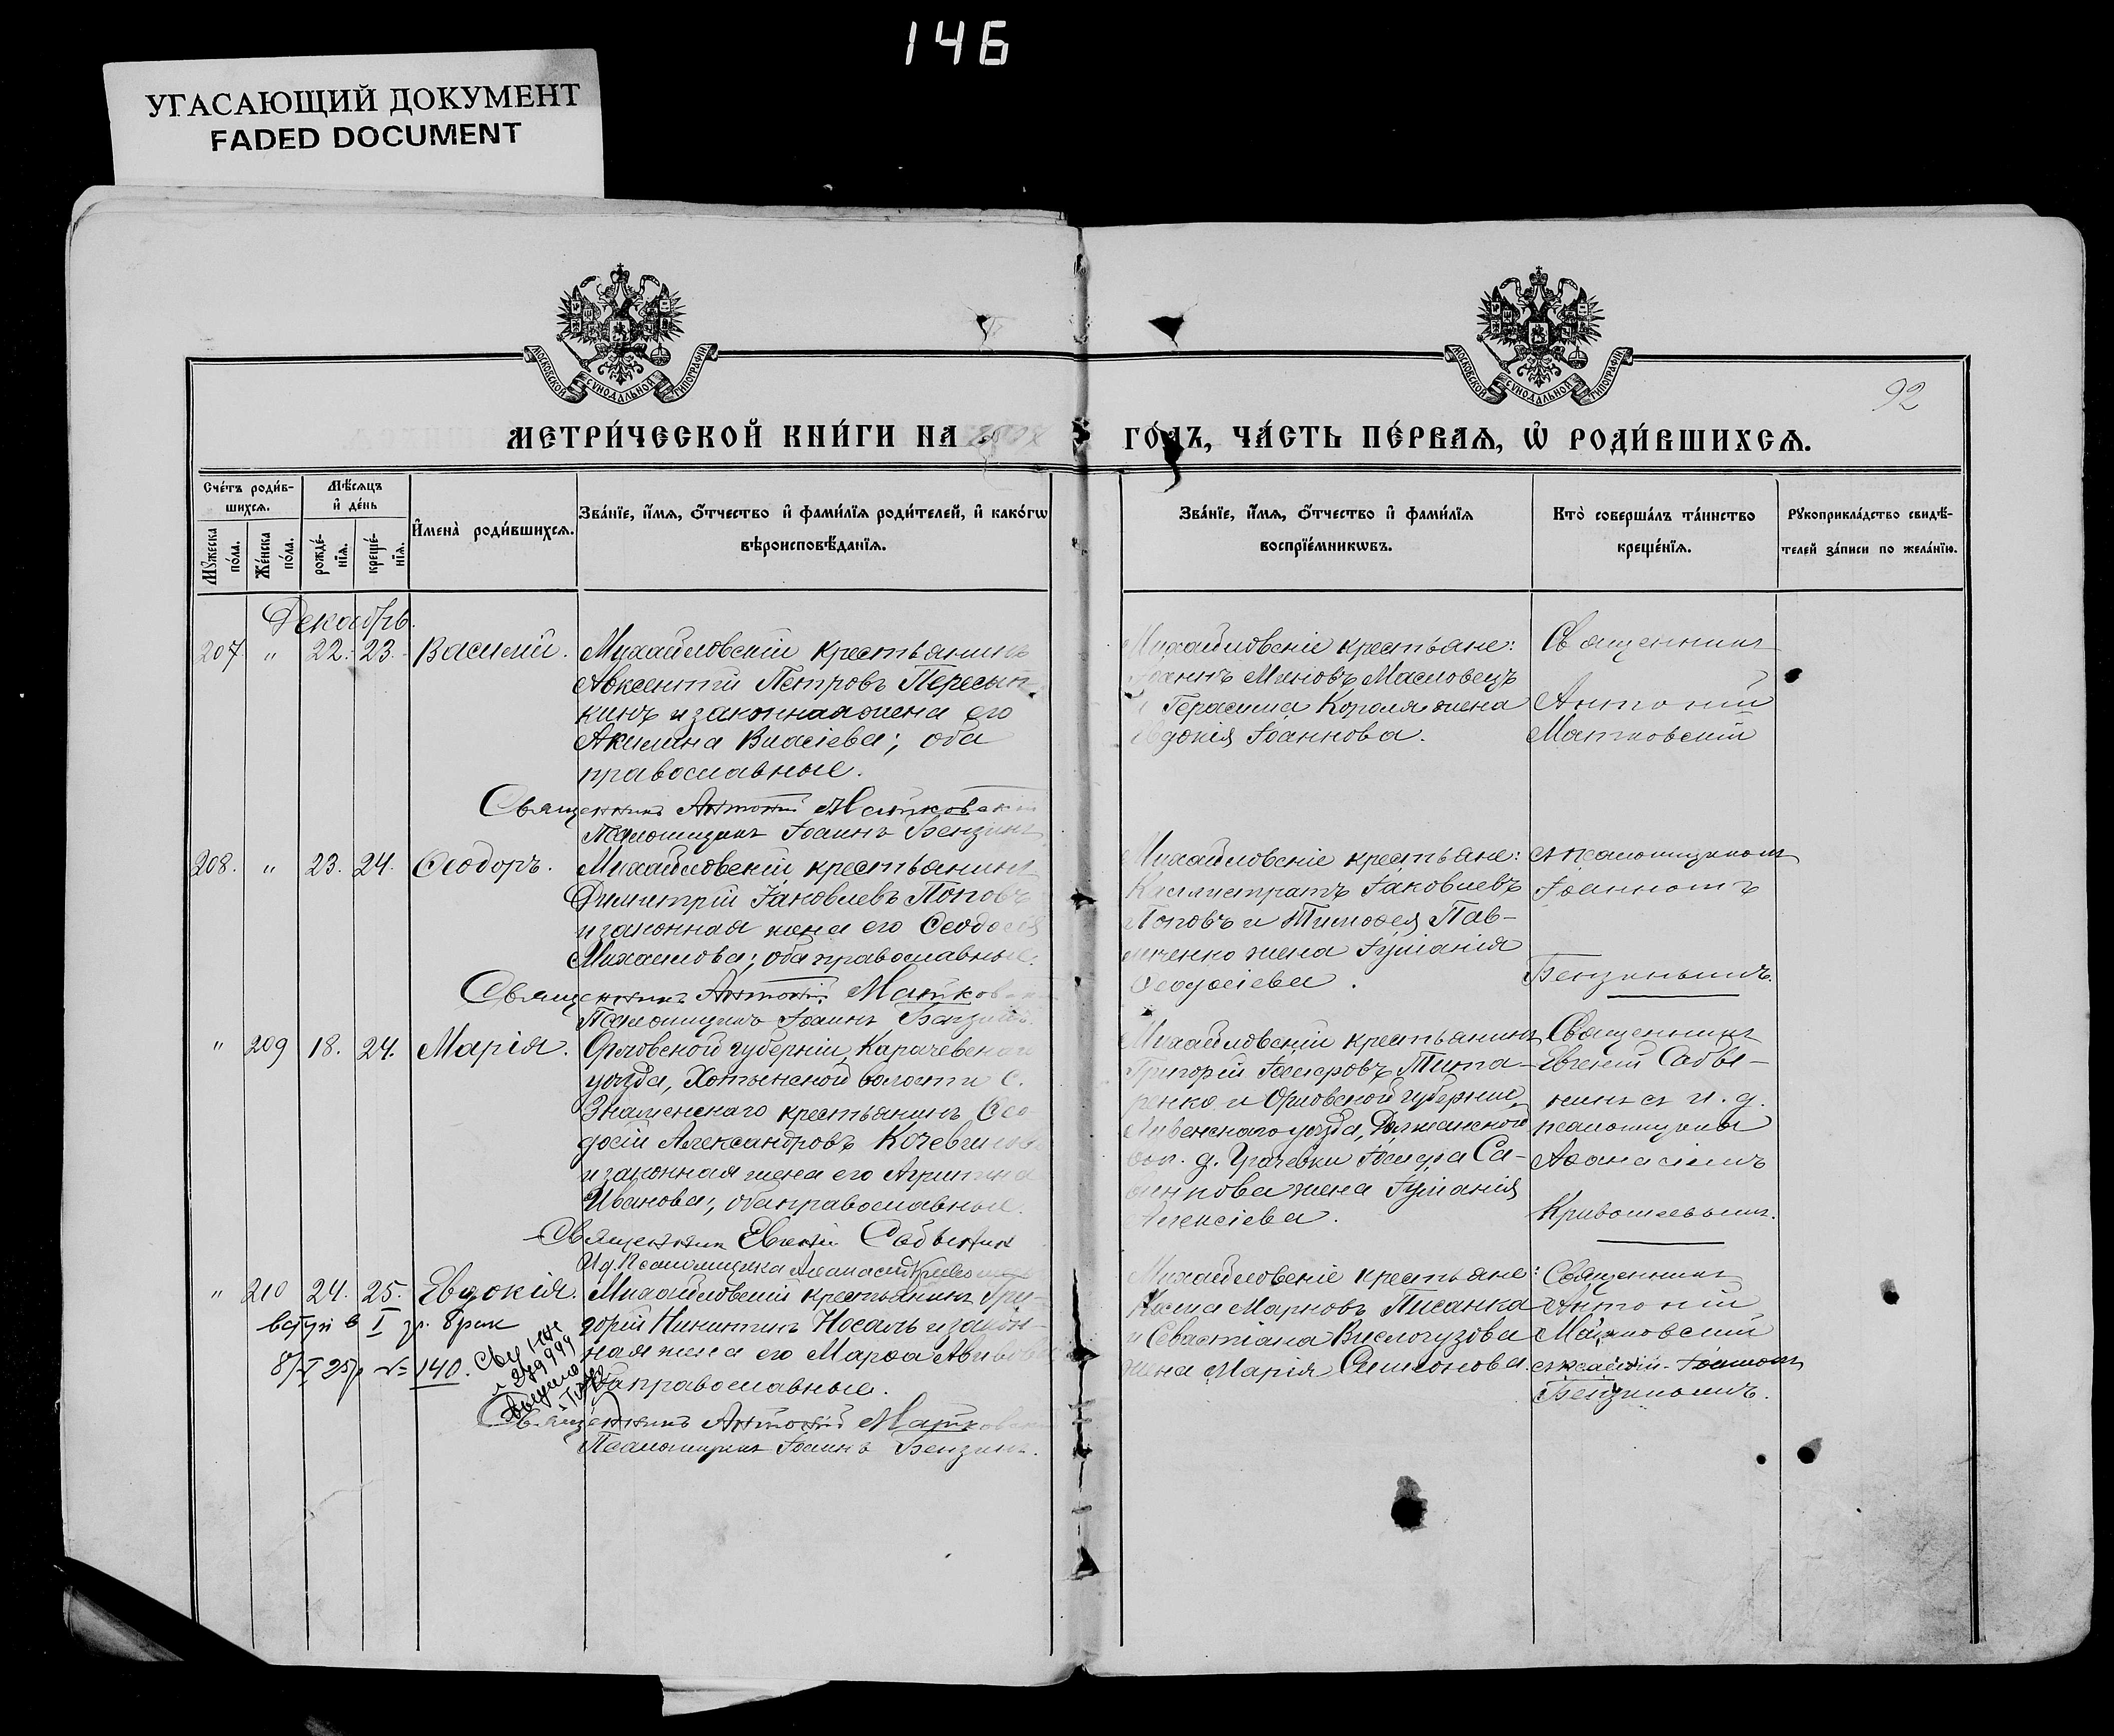 146
УГАСАЮЩИЙ ДОКУМЕНТ
FADED DOCUMENT
МОСКОВСКОЙ СѴНОДАЛЬНОЙ ТИПОГРАФІИ
МОСКОВСКОЙ СѴНОДАЛЬНОЙ ТИПОГРАФІИ
92
МЕТРИ́ЧЕСКОЙ КНИ́ГИ НА
ГО́ДЪ, ЧА́СТЬ ПЕ́РВАѦ, Ѡ҆ РОДИ́ВШИХСѦ.
Сче́тъ роди́в-
шихсѧ.
Мꙋ́жеска по́ла.
Же́нска по́ла.
Мѣ́сѧцъ
и҆ де́нь
рожде́-нїѧ.
креще́-нїѧ.
И҆мена̀ роди́вшихсѧ.
Зва́нїе, и҆́мѧ, ѻ҆́тчество и҆ фами́лїѧ роди́телей, и҆ како́гѡ
вѣроисповѣ́данїѧ.
Зва́нїе, и҆́мѧ, ѻ҆́тчество и҆ фами́лїѧ
воспрїе́мникѡвъ.
Кто̀ соверша́лъ та́инство
креще́нїѧ.
Рꙋкоприкла́дство свидѣ́-
телей за́писи по жела́нїю.
Декабрь.
207. " 22. 23. Василій.
Михайловскій крестьянинъ
Авксентій Петровъ Пересып-
кинъ и законная жена его
Акилина Власіева; оба
православные.
Священникъ Антоній Матковскій
Псаломщикъ Іоаннъ Бензинъ
Михайловскіе крестьяне:
Іоаннъ Миновъ Масловецъ
и Герасима Короля жена
Евдокія Іоаннова.
Священникъ
Антоній
Матковскій
208. " 23. 24. Ѳеодоръ.
Михайловскій крестьянинъ
Димитрій Іаковлевъ Поповъ
и законная жена его Ѳеодосія
Михаилова; оба православные.
Священникъ Антоній Матковскій
Псаломщикъ Іоаннъ Бензинъ
Михайловскіе крестьяне:
Каллистратъ Іаковлевъ
Поповъ и Тимоѳея Пав-
личенко жена Іуліанія
Ѳеодосіева.
съ псаломщикомъ
Іоанномъ
Бензинымъ.
" 209 18. 24. Марія.
Орловской губерніи, Карачевскаго
уѣзда, Хотынской волости с.
Знаменскаго крестьянинъ Ѳео-
досій Александровъ
и законная жена его Агрипина
Иванова; оба православные.
Священник Евгеній
И. д. Псаломщика Аѳанасій
Михайловскій крестьянинъ
Григорій Тита-
ренко и Орловской губерніи,
Ливенскаго уѣзда,
вол. д. Са-
жена Іуліанія
Алексіева.
Священникъ
Евгеній
съ и. д.
псаломщика
Аѳанасіемъ
Кривошеевымъ.
" 210 24. 25. Евдокія.
Михайловскій крестьянинъ Гри-
горій Никитинъ Носаль и закон-
ная жена его Марѳа
оба православные.
Священникъ Антоній Матковскій
Псаломщикъ Іоаннъ Бензинъ.
Михайловскіе крестьяне:
Косма Марковъ Писанка
и Севастіана Вислогузова
жена Марія Симеонова.
Священникъ
Антоній
Матковскій
Іоанномъ
Бензинымъ.
в I брак
№ 140.